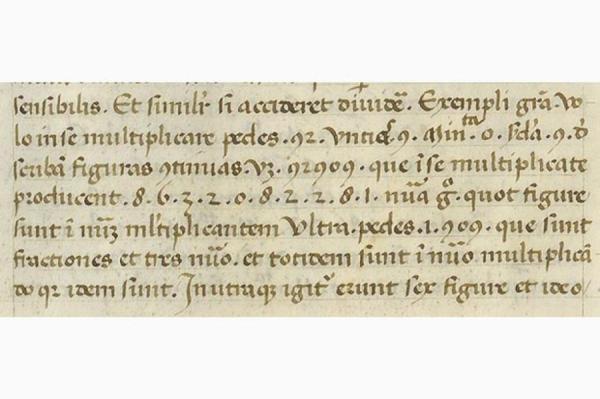 sensibilis. Et similr̃ si accideret diuidẽ. Exempli grã. Vo
lo in se multiplicare pedes. 92. vntie 9. Min ta. 0. scďa. 9.
scribã figuras 9tinuas. vz. 92909. que ĩ se multiplicate
producent. 8. 6. 3. 2. 0. 8. 2. 2. 8. 1. quot figure
sunt ĩ multiplicantem Vltra. pedes. 1. 909. que sunt
fractiones et tres et totidem sunt ĩ multiplicã
do qr idem sunt. In utraqz igit̃ erunt sex figure et ideo